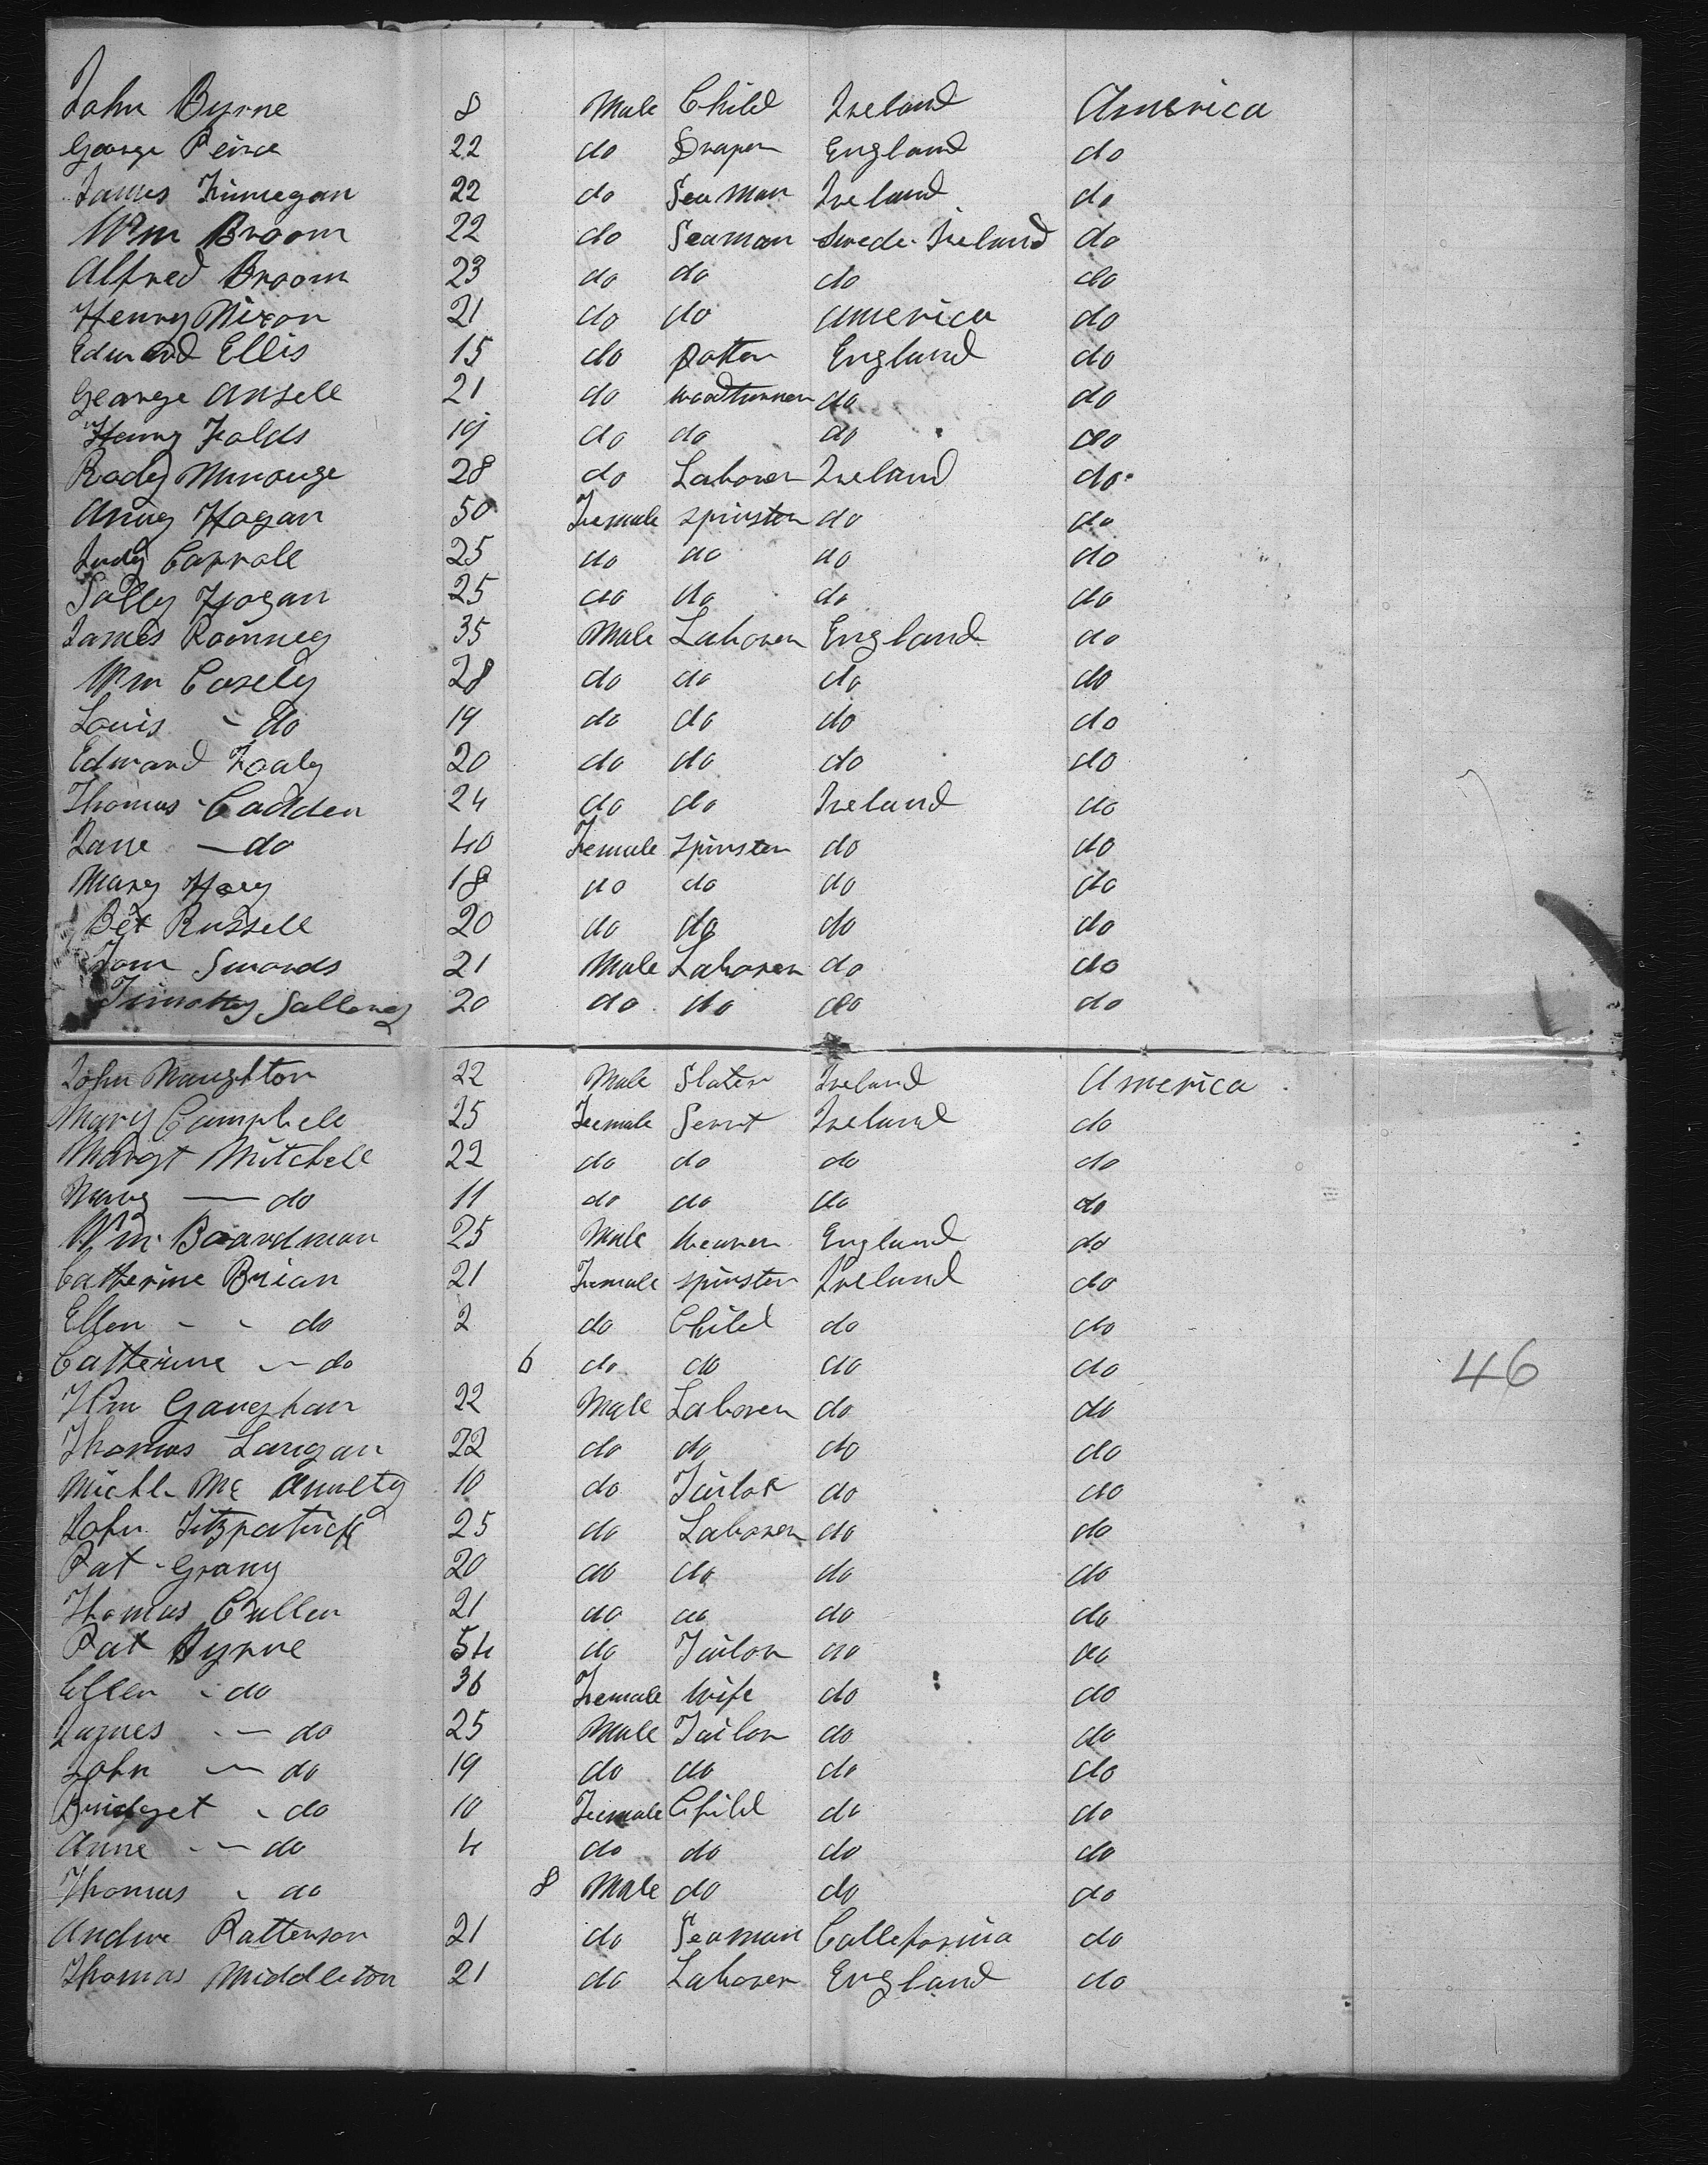 John Byrne 8 Male Child Ireland America
George Peirce 22 do Draper England do
James Finnegan 22 do Seaman Ireland do
Wm Broom 22 do Seaman Swede. Ireland do
Alfred Broom 23 do do do do
Henry Nixon 21 do do America do
Edward Ellis 15 do Potter England do
George Ansell 21 do Woodturner do do
Henry Folds 19 do do do do
Rody 28 do Laborer Ireland do
Anny Hogan 50 Female Spinster do do
Judy Carroll 25 do do do do
Sally Hogan 25 do do do do
James Romney 35 Male Laborer England do
Wm Casely 28 do do do do
Louis - do 19 do do do do
Edward Foaly 20 do do do do
Thomas Cadden 24 do do Ireland do
Jane - do 40 Female Spinster do do
Mary Hoey 18 do do do do
Bet Russell 20 do do do do
Tom Swords 21 Male Laborer do do
Timothy 20 do do do do
John Naughton 22 Male Slater Ireland America
Mary Campbell 25 Female Servt Ireland do
Margt Mitchell 22 do do do do
Mary — do 11 do do do do
Wm Boardman 25 Male Weaver England do
Catherine Brian 21 Female Spinster Ireland do
Ellen - - do 2 do Child do do
Catherine - do 6 do do do do
46
Wm Gaughan 22 Male Laborer do do
Thomas Langan 22 do do do do
Michl Mc Anulty 10 do Tailor do do
John Fitzpatrick 25 do Laborer do do
Pat Grany 20 do do do do
Thomas Cullen 21 do do do do
Pat Byrne 54 do Tailor do do
Ellen - do 36 Female Wife do do
James - do 25 Male Tailor do do
John - do 19 do do do do
Bridget - do 10 Female Child do do
Anne - do 4 do do do do
Thomas - do 8 Male do do do
Andrw Patterson 21 do Seaman Calleforina do
Thomas Middleton 21 do Laborer England do